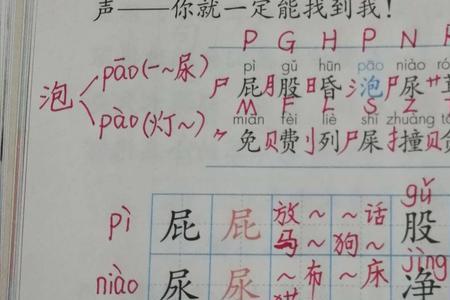 声——你就一定能找到我！
P G H P N
pì gǔ hūn pāo niào
尸屁月股日昏氵泡尸尿艹
M F L S Z
miǎn fèi liè shǐ zhuàng
免贝费刂列尸屎扌撞贝
泡
pāo(一～尿)
pào(灯～)
pì 屁 屁 放～ ～话 gǔ 股
马～ 狗～
niào 尿 尿 ～布 ～床 jìng 净